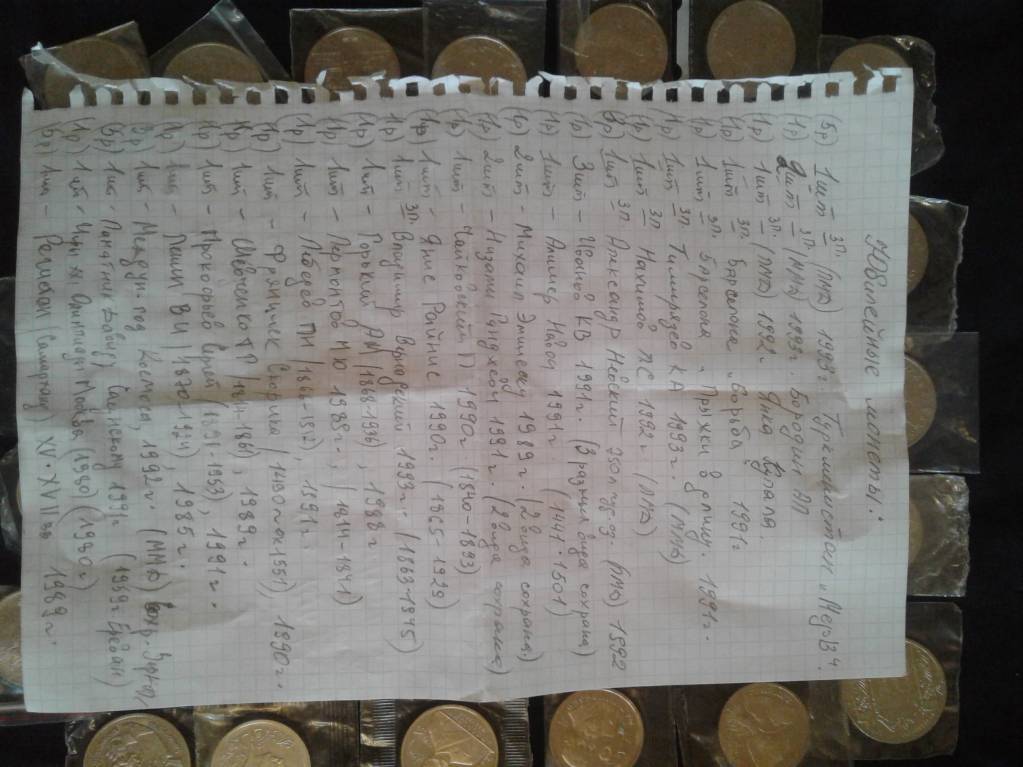 Юбилейные монеты.
5р) 1шт – зп. (ЛМД) 1993г. Туркмистан „Мерв“.
(1р) 2шт – зп. (ММД) 1993г. Бородин АП
(1р) 1шт зп. (ЛМД) 1992г. Янка Купала.
(1р) 1шт зп. Барселона „Борьба 1991г
(1р) 1шт – зп. Барселона „Прыжки в длину. 1991г.
(1р) 1шт зп. Тимирязев КА 1993г. (ММД)
(1р) 1шт зп Нахимов ПС 1992г (ЛМД)
1шт – зп Александр Невский 1992
(1р) 3шт – Иванов КВ 1991г. (В разных вида сохрана)
(1р) 1шт – Алишер Навои 1991г (1441-1501)
(1р) 2шт – Михаил Эминеску 1989г. (2 вида сохрана)
(1р) 2шт – Низами Гянджеви 1991г. (2 вида сохрана)
(1р) 1шт – Чайковский П 1990г (1840-1893)
(1р) 1шт – Янис Райнис 1990г (1865-1929)
(1р) 1шт – зп. Владимир Вернадский 1993г. (1863-1945)
(1р) 1шт – Горький АМ (1868-1936), 1988г
(1р) 1шт – Лермонтов МЮ 1989г., (1814-1841)
(1р) 1шт – Лебедев ПН (1866-1912), 1991г.
(1р) 1шт – Франциск Скорина 1990г.
(1р) 1шт – Шевченко ТГ (1814-1861), 1989г.
(1р) 1шт – Прокофьев Сергей (1891-1953), 1991г.
(1р) 1шт – Ленин ВИ (1870-1924), 1985г.
3р) 1шт – Междун. год Космоса, 1992г. (ММД)
5р) 1шт – Памятник Давиду Сасунскому 1991г (1959г Ереван)
(1р) 1шт – Игры XXII Олимпиады Москва (1980) (1980г)
(5р) 1шт – Регистан (Самарканд) XV-XVII вв 1989г.